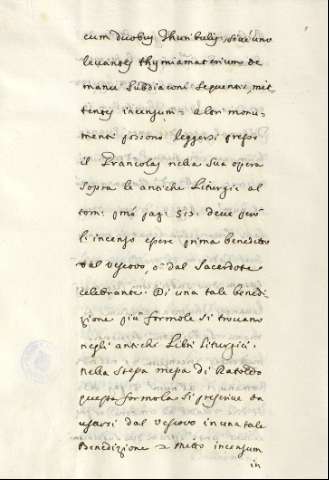 cum duobus Thuribulis, sive uno
levantes thymiamaterium de
manu Subdiaconi Sequentis mit
tentes incensum = altri monu-
menti possono leggersi presso
il Prancolas nella Sua opera
Sopra le antiche Liturgie al
tom: pmo pag: 513. deve però
l'incenso essere prima benedetto
dal Vescovo, o dal Sacerdote
celebrante. Di una tale benedi-
zione più formole si trovano
negli antichi Libri Liturgici:
nella Stessa messa di Ratoldo
questa formola si prescrive
usarsi dal Vescovo in una tale
Benedizione = Mitto incensum
in